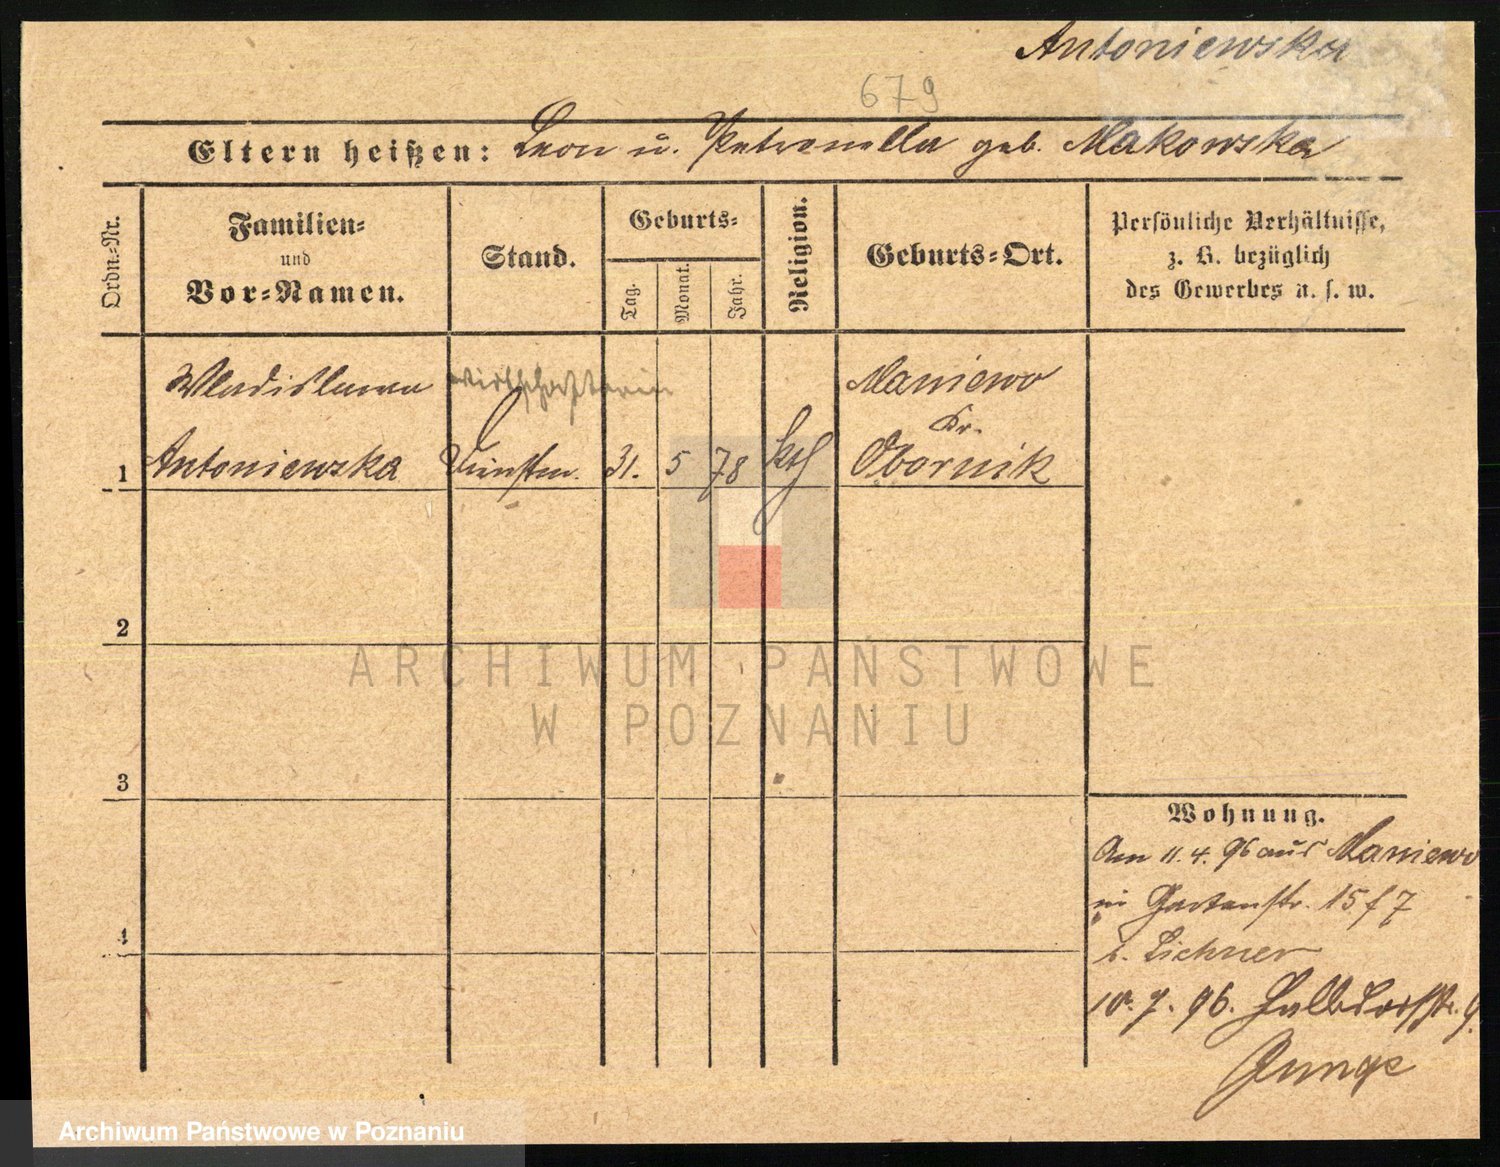 Antoniewska
679
Eltern heißen: Leon u. Petronella geb. Makowska
Ordn.-Nr.
Familien-
und
Vor-Namen.
Stand.
Geburts-
Tag.
Monat.
Jahr.
Religion.
Geburts-Ort.
Persönliche Verhältnisse,
z. B. bezüglich
des Gewerbes u. s. w.
Wladislawa
wirthschafterin
Maniewo
Kr.
1 Antoniewska 31. 5 78 kth Obornik
2
ARCHIWUM PAŃSTWOWE
W POZNANIU
3
Wohnung.
Am 11.4.96 aus Maniewo
in Gartenstr. 15 f 7
b. Lichner
4
10.7.96. Halbdorfstr. 9.
Junge
Archiwum Państwowe w Poznaniu